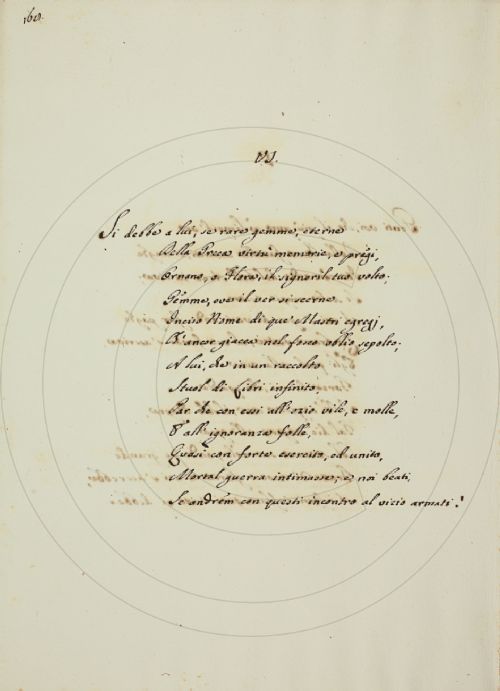 160.
VI.
Si debbe a lui, se rare gemme, eterne
Della Greca virtù memorie, e pregi,
Ornano, o Flora, il signoril tuo volto;
Gemme, ove il ver si scerne
Inciso Nome di que' Mastri egregj,
Ch' ancor giacea nel fosco oblio sepolto;
A lui, che in un raccolto
Stuol di Libri infinito,
Par che con essi all' ozio vile, e molle,
E all' ignoranza folle,
Quasi con forte esercito, ed unito,
Mortal guerra intimasse; e noi beati,
Se andrem con questi incontro al vicio armati!